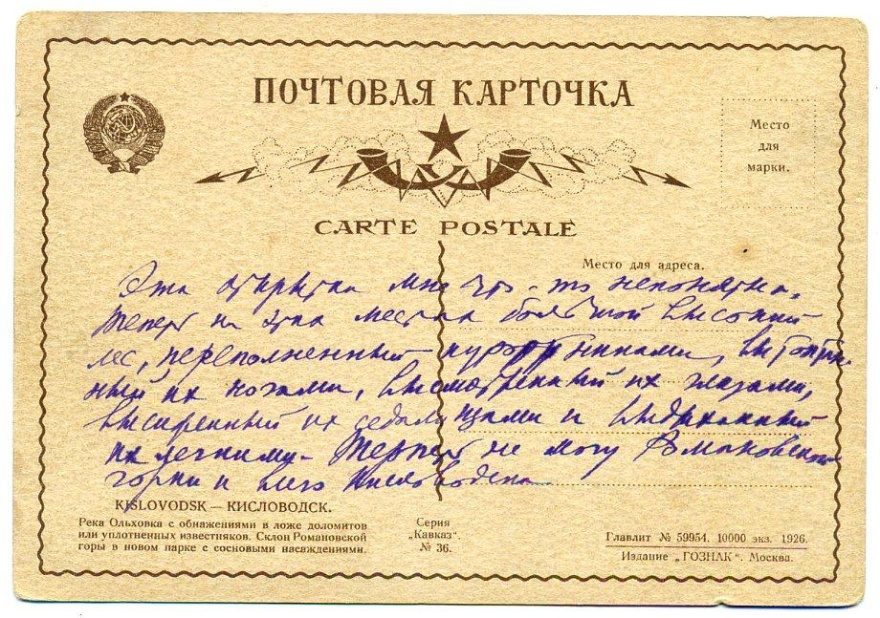 ПОЧТОВАЯ КАРТОЧКА
Место
для
марки.
CARTE POSTALE
Место для адреса.
Эта открытка мне что-то непонятна.
Теперь на этих местах большой высокий
лес, переполненный курортниками, вытоптан-
ный их ногами, высмотренный их глазами,
их седалищами и
их легкими. Терпеть не могу Романовской
горки и всего Кисловодска
KISLOVODSK — КИСЛОВОДСК.
Река Ольховка с обнажениями в ложе доломитов
или уплотненных известняков. Склон Романовской
горы в новом парке с сосновыми насаждениями.
Серия
„Кавказ".
№ 36.
Главлит № 59954. 10000 экз. 1926.
Издание „ГОЗНАК". Москва.